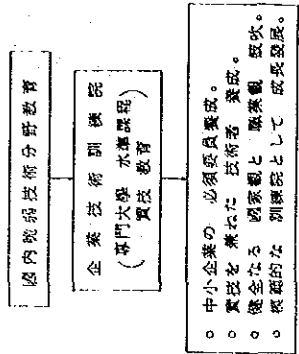 國内脆弱技術分野教育
企業技術訓練院
(専門大學 水準課程)
實技 教育
○ 中小企業の 必須要員養成。
○ 實技を 兼ねた 技術者 養成。
○ 健全なる 國家觀と 職業觀 鼓吹。
○ 模範的な 訓練院として 成長發展。